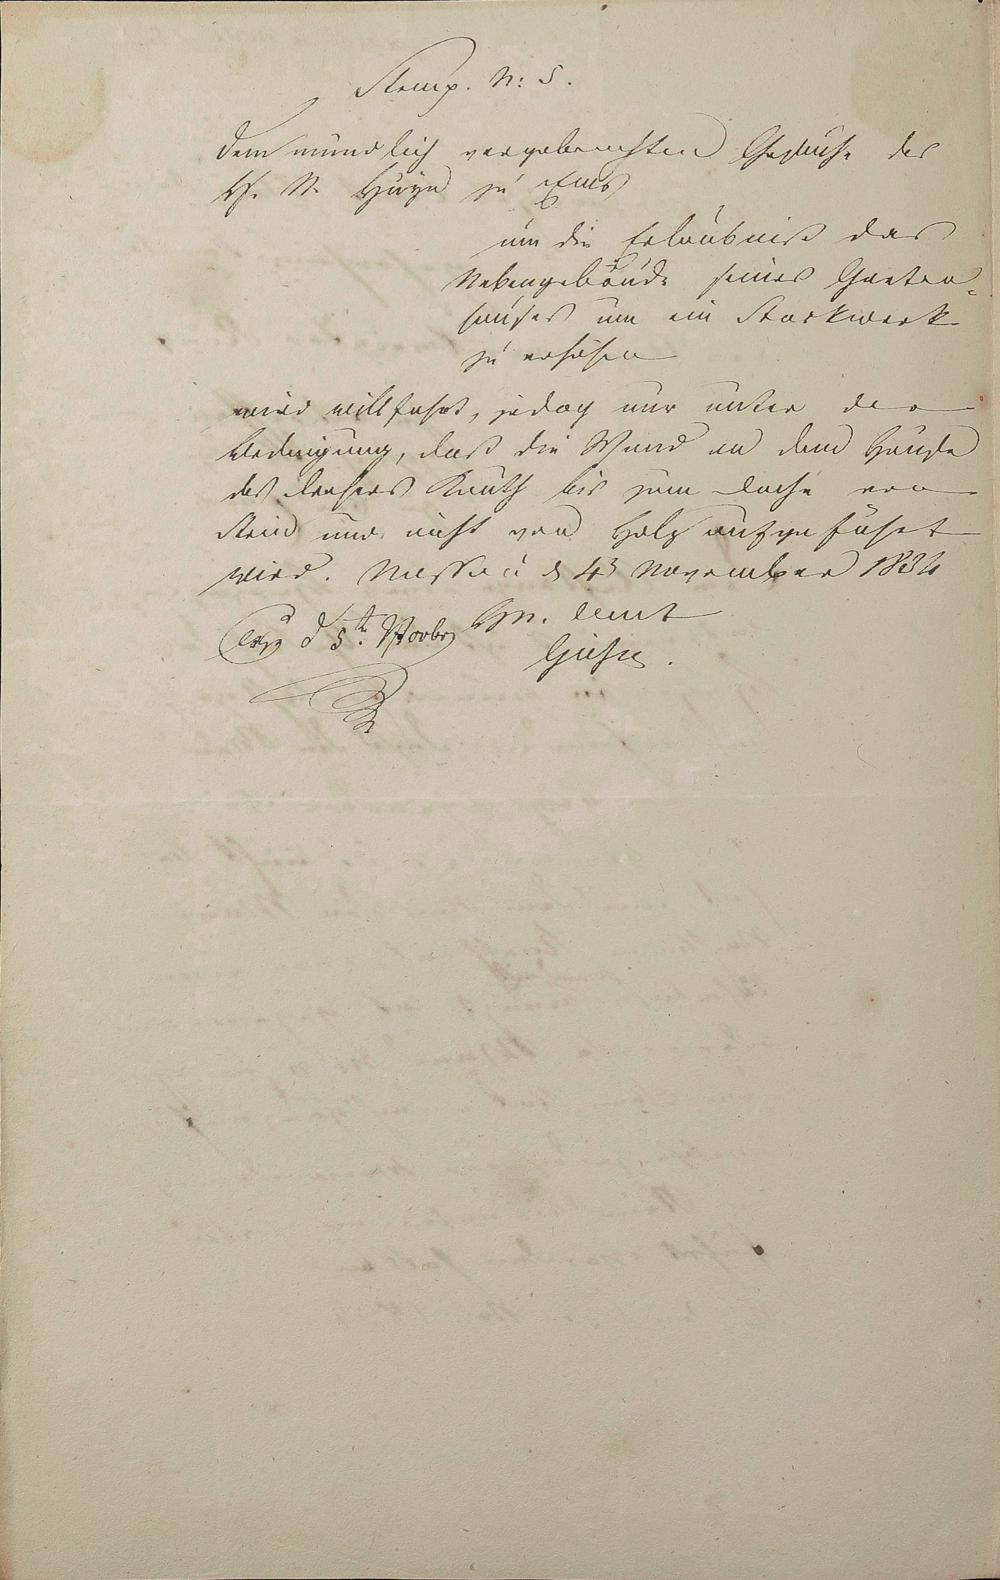 Stemp. N: 5.
Dem mündlich vorgebrachten Gesuche des
H. N. Huyn zu Ems
um die Erlaubniß das
Nebengebäude seines Garten-
hauses um ein Stockwerk
zu erhöhen
wird willfahrt, jedoch nur unter der
Bedingung, daß die Wand an dem Hause
des Drehers Knuth bis zum Dache von
Stein und nicht von Holz aufgeführt
wird. Nassau d 4 November 1834
Exp d 5t. Novbr
H. N. Amt